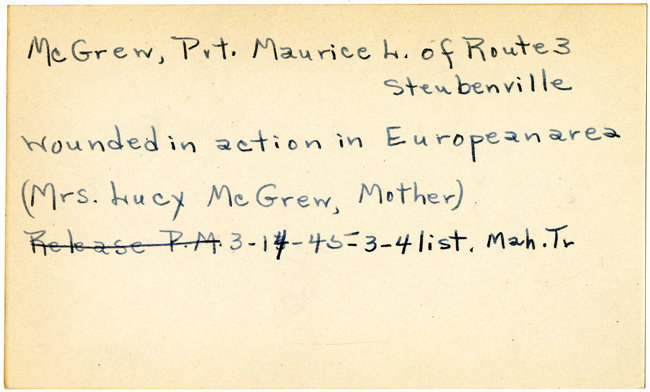 McGrew, Pvt. Maurice L. of Route 3
Steubenville
wounded in action in European area
(Mrs. Lucy McGrew, Mother)
Release P.M. 3-14-45=3-4 list. Mah. Tr